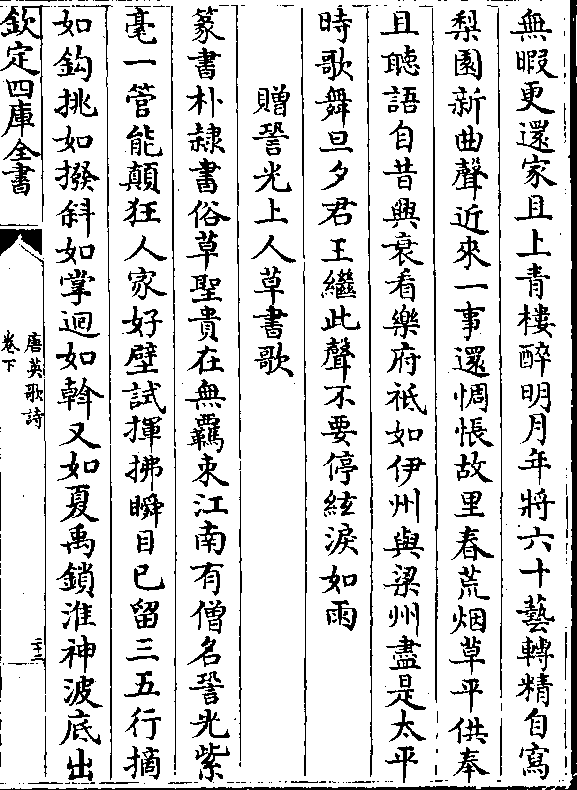 無暇更還家且上青樓醉明月年將六十藝轉精自寫
梨園新曲聲近來一事還惆悵故里春荒烟草平供奉
且聽語自昔興衰看樂府祗如伊州與梁州盡是太平
時歌舞旦夕君王繼此聲不要停絃淚如雨
贈䛒光上人草書歌
篆書朴隸書俗草聖貴在無羈束江南有僧名䛒光紫
毫一管能顛狂人家好壁試揮拂瞬目已留三五行摘
如鈎挑如撥斜如掌迴如斡又如夏禹鎖淮神波底出
欽定四庫全書
唐英歌詩
卷下
二十二